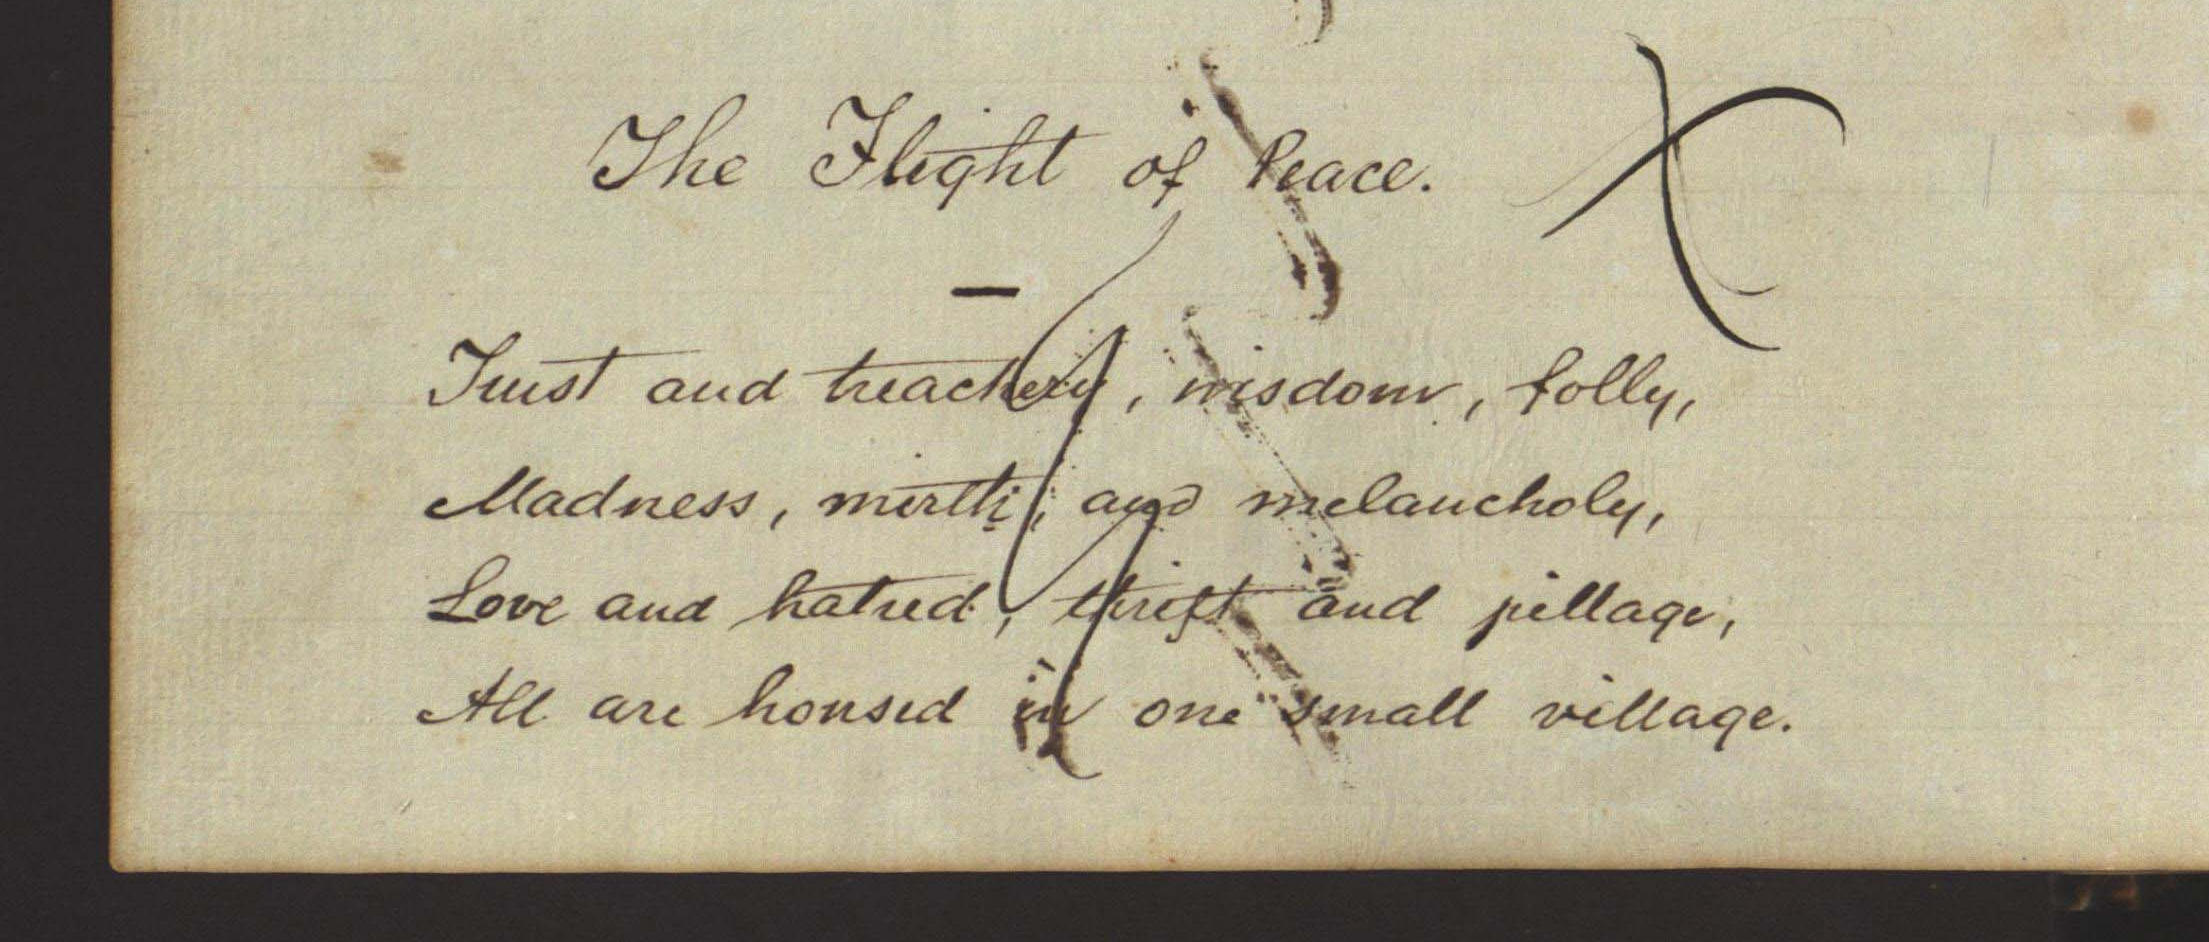 The Flight of Peace.
Trust and treachery, wisdom, folly,
Madness, mirth, and melancholy,
Love and hatred, thrift and pillage,
All are housed in one small village.